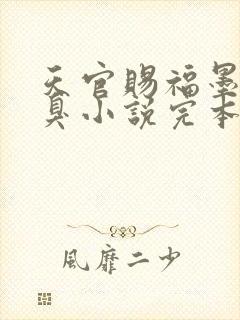 天官賜福墨
臭小說完本
風靡二少